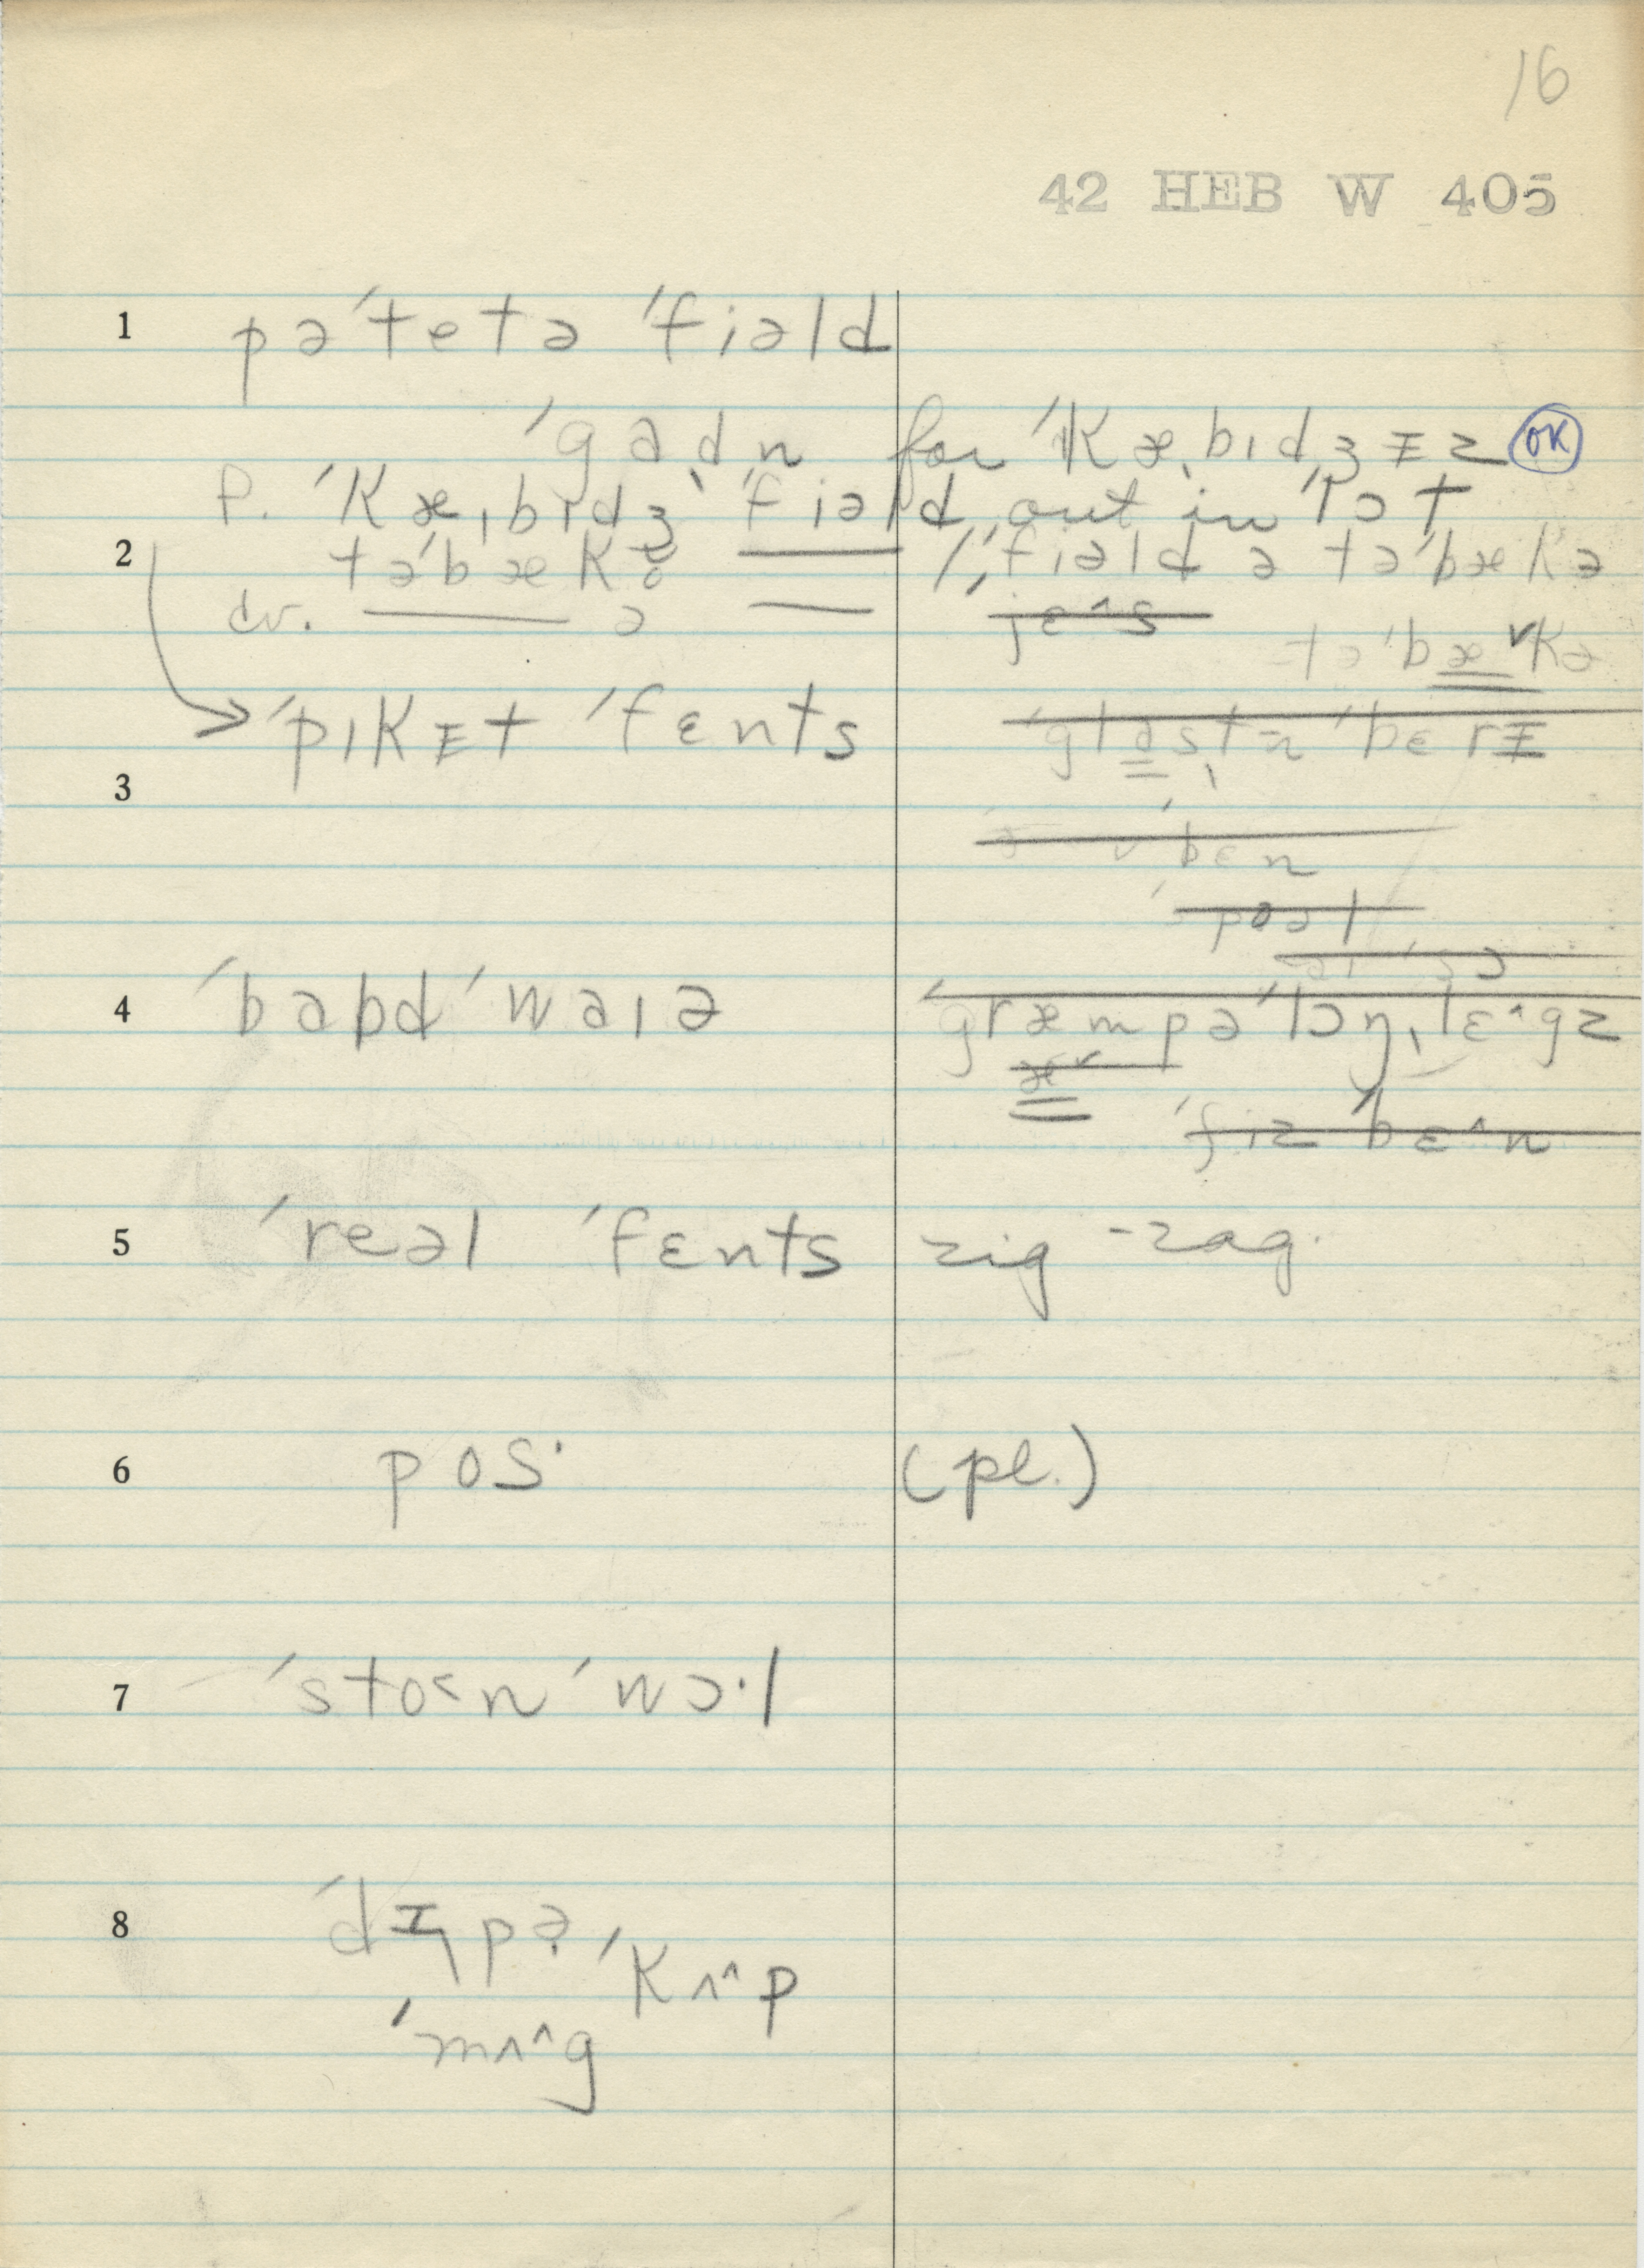 16
42 HEB W 405
1 pə´tetə ´fiəld
´gadn for ´kæˌbɪdʒɪz OK
P. ´kæˌbɪdʒ ´fiəld, out in ´lɔt
2 tə´bækə ´fiəld ə tə´bækə
dv. ə jɛ^s
tə´bæ˅kə
´pɪkɪt ´fɛnts ´glastn ´bɛrɪ
3
´bɛn
´poəl
4 ´babd ´waɪə ´græmpə ´lɔŋˌlɛ^gz
æ˅
´fiz ´bɛ^n
5 ´reəl ´fɛnts zig-zag.
6 pos· (pl.)
7 ´sto˂n ´wɔ·l
8 ´dɪpə ´kʌ^p
´mʌ^g